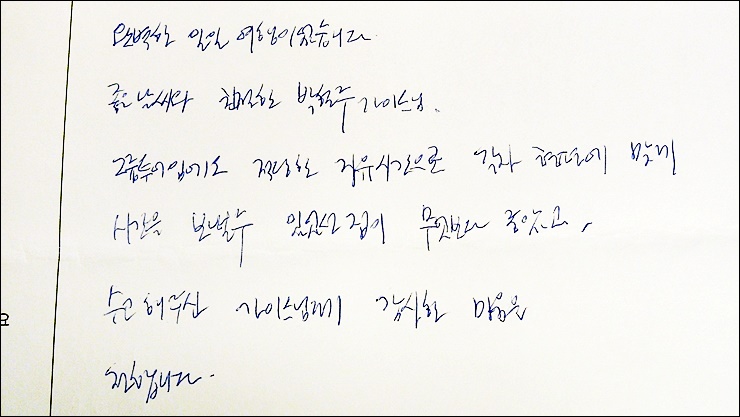 완벽한 일일 여행이었습니다.
좋은 날씨와 친절한 박현수 가이드님.
그룹투어임에도 적당한 자유시간으로 각자 컨디션에 맞게
시간을 보낼수 있었던 점이 무엇보다 좋았고,
수고해주신 가이드님에게 감사한 마음을
전합니다.
요